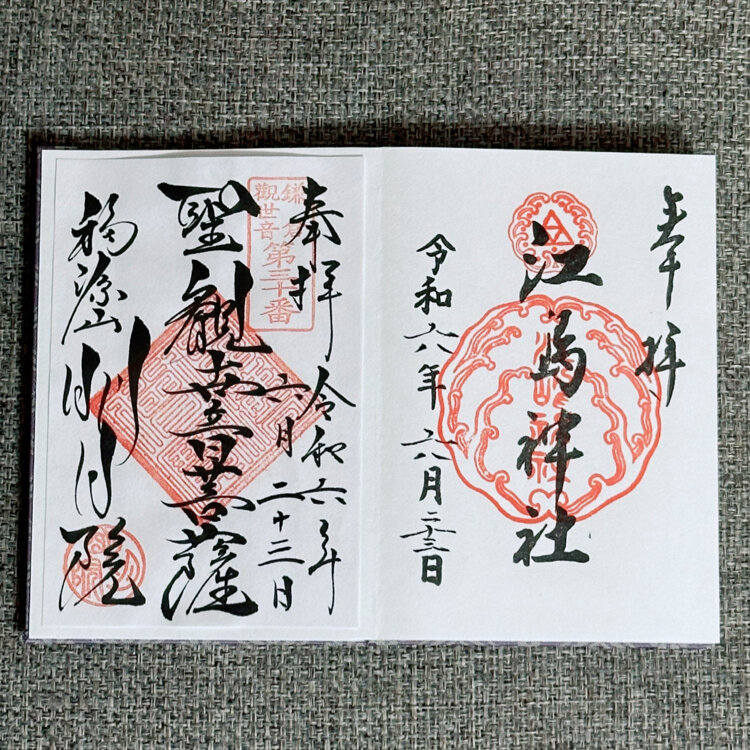 奉拝
江島神社
令和六年六月二十三日
奉拝
令和六年
六月二十三日
鎌倉
觀世音第三十番
聖観世音菩薩
福源山
明月院